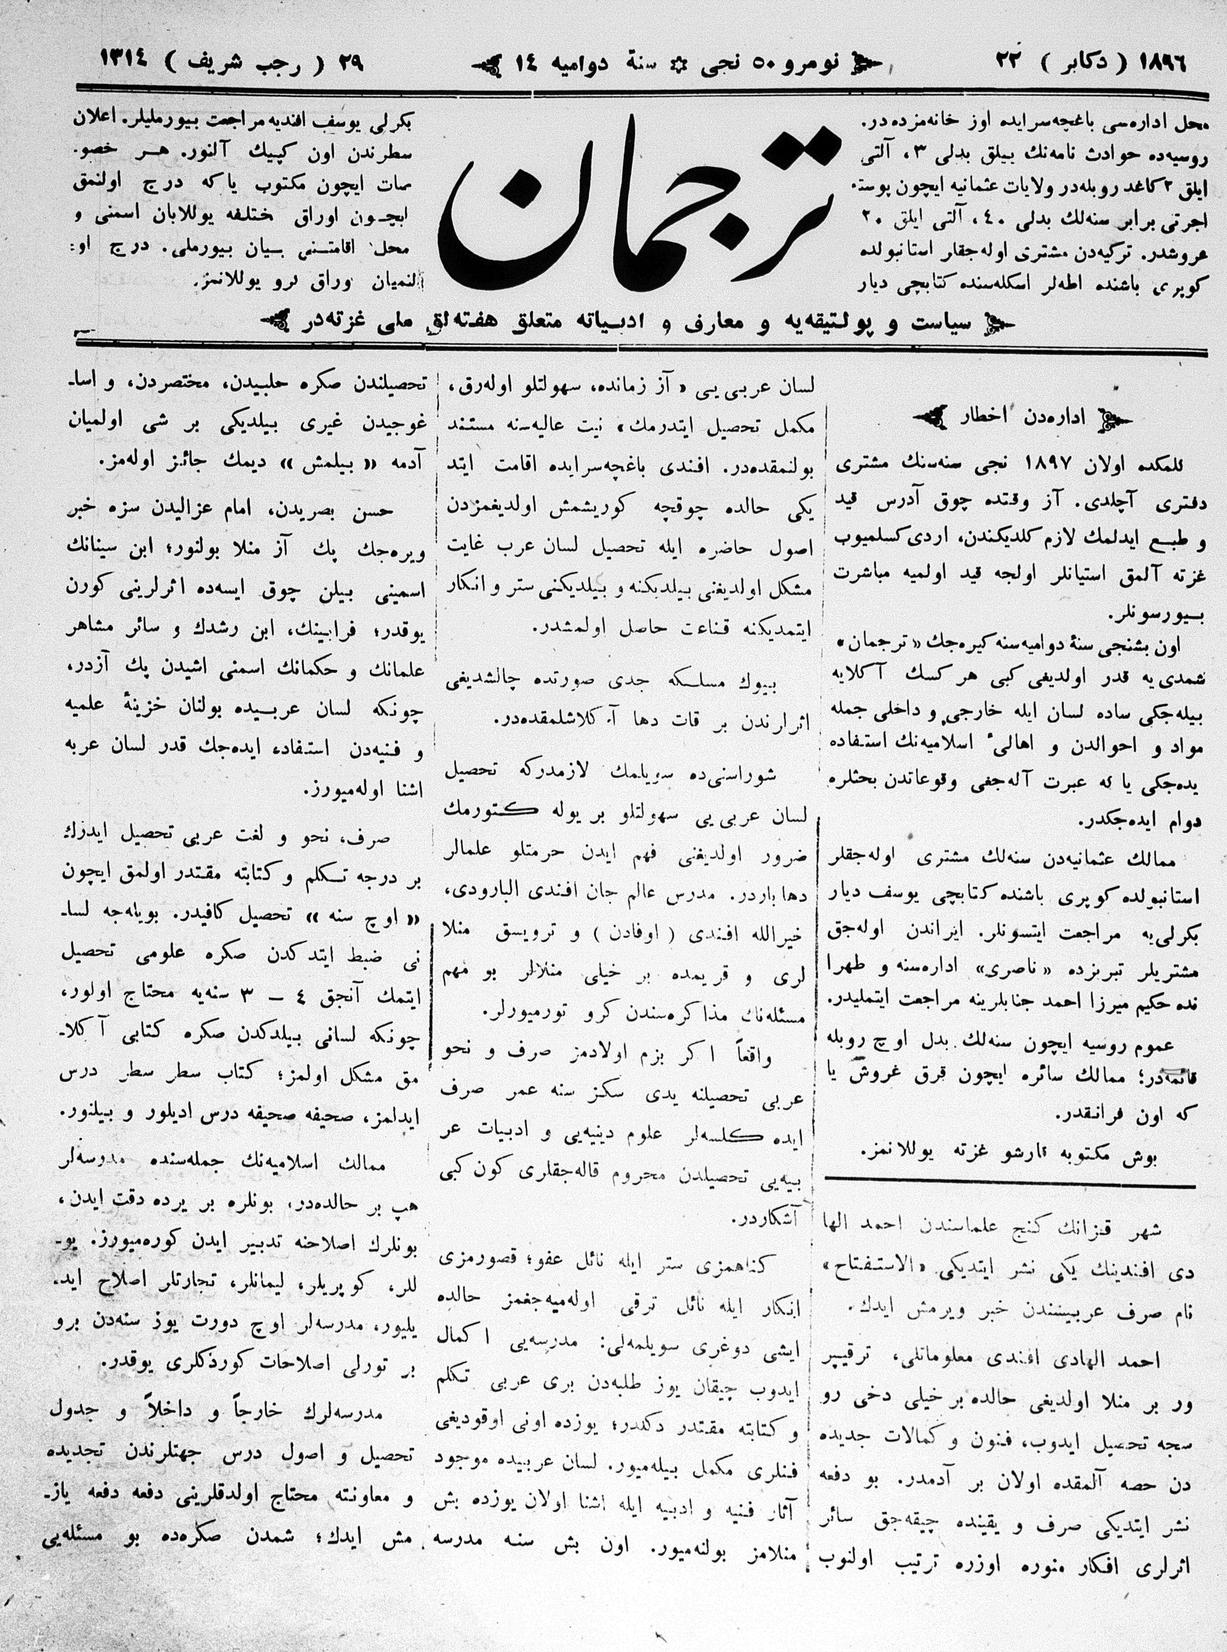 ١٨٩٦ ( دكابر ) ٢٢
نومرو ٥٠ نجی ✡ سنهٔ دواميه ١٤
٢٩ ( رجب شريف ) ١٣١٤
محل اداره‌سی باغچه‌سرايده اوز خانه‌مزده‌در.
روسيه‌ده حوادث نامه‌نك ييللق بدلی ٣، آلتی
ايلق ٢ كاغد روبله‌در ولايات عثمانيه ايچون پوسته
اجرتی برابر سنه‌لك بدلی ٤٠، آلتی ايلق ٢٠
غروشدر. تركيه‌دن مشتری اوله‌جقلر استانبولده
كوپری باشنده اطه‌لر اسكله‌سنده كتابچی ديار
ترجمان
بكرلی يوسف افنديه مراجعت بيورمليلر. اعلان
سطرندن اون كپيك آلنور. هر خصو-
صات ايچون مكتوب ياكه درج اولنمق
ايچون اوراق مختلفه يوللايان اسمنی و
محل اقامتنی بيان بيورملی. درج او-
لنميان اوراق كرو يوللانمز.
سياست و پولتيقه‌يه و معارف و ادبياته متعلق هفته‌لق ملی غزته‌در
اداره‌دن اخطار
كلمكده اولان ١٨٩٧ نجی سنه‌سنك مشتری
دفتری آچلدی. آز وقتده چوق آدرس قيد
و طبع ايدلمك لازم كلديكندن، اردی كسلميوب
غزته آلمق استيانلر اولجه قيد اولميه مباشرت
بيورسونلر.
اون بشنجی سنهٔ دواميه‌سنه كيره‌جك «ترجمان»
شمدی‌يه قدر اولديغی كبی هر كسك آكلايه
بيله‌جكی ساده لسان ايله خارجی و داخلی جمله
مواد و احوالدن و اهالیٔ اسلاميه‌نك استفاده
يده‌جكی يا كه عبرت آله‌جغی وقوعاتدن بحثلره
دوام ايده‌جكدر.
ممالك عثمانيه‌دن سنه‌لك مشتری اوله‌جقلر
استانبولده كوپری باشنده كتابچی يوسف ديار
بكرلی‌يه مراجعت ايتسونلر. ايراندن اوله‌جق
مشتريلر تبريزده «ناصری» اداره‌سنه و طهرا
نده حكيم ميرزا احمد جنابلرينه مراجعت ايتمليدر.
عموم روسيه ايچون سنه‌لك بدل اوچ روبله
قائمه‌در؛ ممالك سائره ايچون قرق غروش يا
كه اون فرانقدر.
بوش مكتوبه قارشو غزته يوللانمز.
شهر قزانك كنج علماسندن احمد الها
دی افندينك يكی نشر ايتديكی «الاستفتاح»
نام صرف عربيسندن خبر ويرمش ايدك.
احمد الهادی افندی معلوماتلی، ترقيپر
ور بر منلا اولديغی حالده بر خيلی دخی رو
سجه تحصيل ايدوب، فنون و كمالات جديده
دن حصه آلمقده اولان بر آدمدر. بو دفعه
نشر ايتديكی صرف و يقينده چيقه‌جق سائر
اثرلری افكار منوره اوزره ترتيب اولنوب
لسان عربی‌يی «آز زمانده، سهولتلو اوله‌رق،
مكمل تحصيل ايتدرمك» نيت عاليه‌سنه مستند
بولنمقده‌در. افندی باغچه‌سرايده اقامت ايتد
يكی حالده چوقچه كوريشمش اولديغمزدن
اصول حاضره ايله تحصيل لسان عرب غايت
مشكل اولديغنی بيلديكنه و بيلديكنی ستر و انكار
ايتمديكنه قناعت حاصل اولمشدر.
بيوك مسلكه جدی صورتده چالشديغی
اثرلرندن بر قات دها آكلاشلمقده‌در.
شوراسنی‌ده سويلمك لازمدركه تحصيل
لسان عربی‌يی سهولتلو بر يوله كتورمك
ضرور اولديغنی فهم ايدن حرمتلو علمالر
دها باردر. مدرس عالم جان افندی البارودی،
خيرالله افندی ( اوفادن ) و ترويسق منلا
لری و قريمده بر خيلی منلالر بو مهم
مسئله‌نك مذاكره‌سندن كرو تورميورلر.
واقعاً اكر بزم اولادمز صرف و نحو
عربی تحصيلنه يدی سكز سنه عمر صرف
ايده كلسه‌لر علوم دينيه‌يی و ادبيات عر
بيه‌يی تحصيلدن محروم قاله‌جقلری كون كبی
آشكاردر.
كناهمزی ستر ايله نائل عفو؛ قصورمزی
انكار ايله نائل ترقی اوله‌ميه‌جغمز حالده
ايشی دوغری سويلمه‌لی: مدرسه‌يی اكمال
ايدوب چيقان يوز طلبه‌دن بری عربی تكلم
و كتابته مقتدر دكلدر؛ يوزده اونی اوقوديغی
فنلری مكمل بيله‌ميور. لسان عربيده موجود
آثار فنيه و ادبيه ايله اشنا اولان يوزده بش
منلامز بولنه‌ميور. اون بش سنه مدرسه
تحصيلندن صكره حلبيدن، مختصردن، و اسا-
غوجيدن غيری بيلديكی بر شی اولميان
آدمه «بيلمش» ديمك جائز اوله‌مز.
حسن بصريدن، امام غزاليدن سزه خبر
ويره‌جك پك آز منلا بولنور؛ ابن سينانك
اسمينی بيلن چوق ايسه‌ده اثرلرينی كورن
يوقدر؛ فرابينك، ابن رشدك و سائر مشاهر
علمانك و حكمانك اسمنی اشيدن پك آزدر،
چونكه لسان عربيده بولنان خزينهٔ علميه
و فنيه‌دن استفاده ايده‌جك قدر لسان عربه
اشنا اوله‌ميورز.
صرف، نحو و لغت عربی تحصيل ايدزك
بر درجه تكلم و كتابته مقتدر اولمق ايچون
«اوچ سنه» تحصيل كافيدر. بويله‌جه لسا-
نی ضبط ايتدكدن صكره علومی تحصيل
ايتمك آنجق ٤ – ٣ سنه‌يه محتاج اولور،
چونكه لسانی بيلدكدن صكره كتابی آكلا-
مق مشكل اولمز؛ كتاب سطر سطر درس
ايدلمز، صحيفه صحيفه درس اديلور و بيلنور.
ممالك اسلاميه‌نك جمله‌سنده مدرسه‌لر
هپ بر حالده‌در، بونلره بر يرده دقت ايدن،
بونلرك اصلاحنه تدبير ايدن كوره‌ميورز. يو-
للر، كوپريلر، ليمانلر، تجارتلر اصلاح ايد-
يليور، مدرسه‌لر اوچ دورت يوز سنه‌دن برو
بر تورلی اصلاحات كوردكلری يوقدر.
مدرسه‌لرك خارجاً و داخلاً و جدول
تحصيل و اصول درس جهتلرندن تجديده
و معاونته محتاج اولدقلرينی دفعه دفعه ياز-
مش ايدك؛ شمدن صكره‌ده بو مسئله‌يی